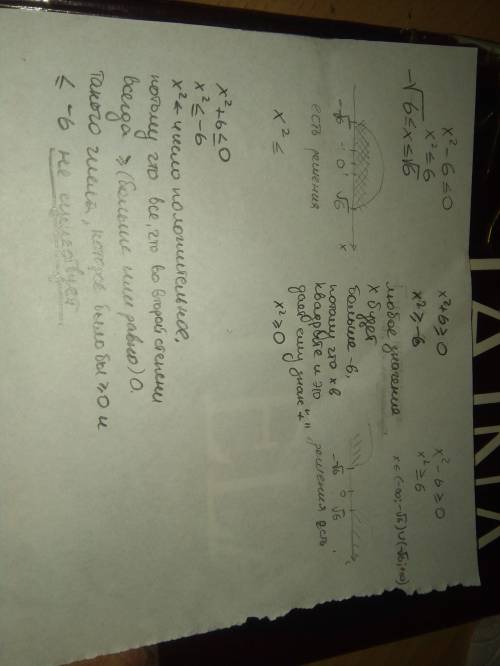 x² - 6 ≤ 0
x² ≤ 6
-√6 ≤ x ≤ √6
-√6 0 √6 x
есть решения
x² ≤
x² + 6 ≤ 0
x² ≤ -6
x² ← число положительное,
потому что все, что во второй степени
всегда ≥ (больше или равно) 0.
Такого числа, которое было бы ≥ 0 и
≤ -6 не существует
x² + 6 ≥ 0
x² ≥ -6
любое значение
x будет
больше -6,
потому что x в
квадрате и это
дает ему знак "+"
x² ≥ 0
x² - 6 ≥ 0
x² ≥ 6
-√6 0 √6
решения есть